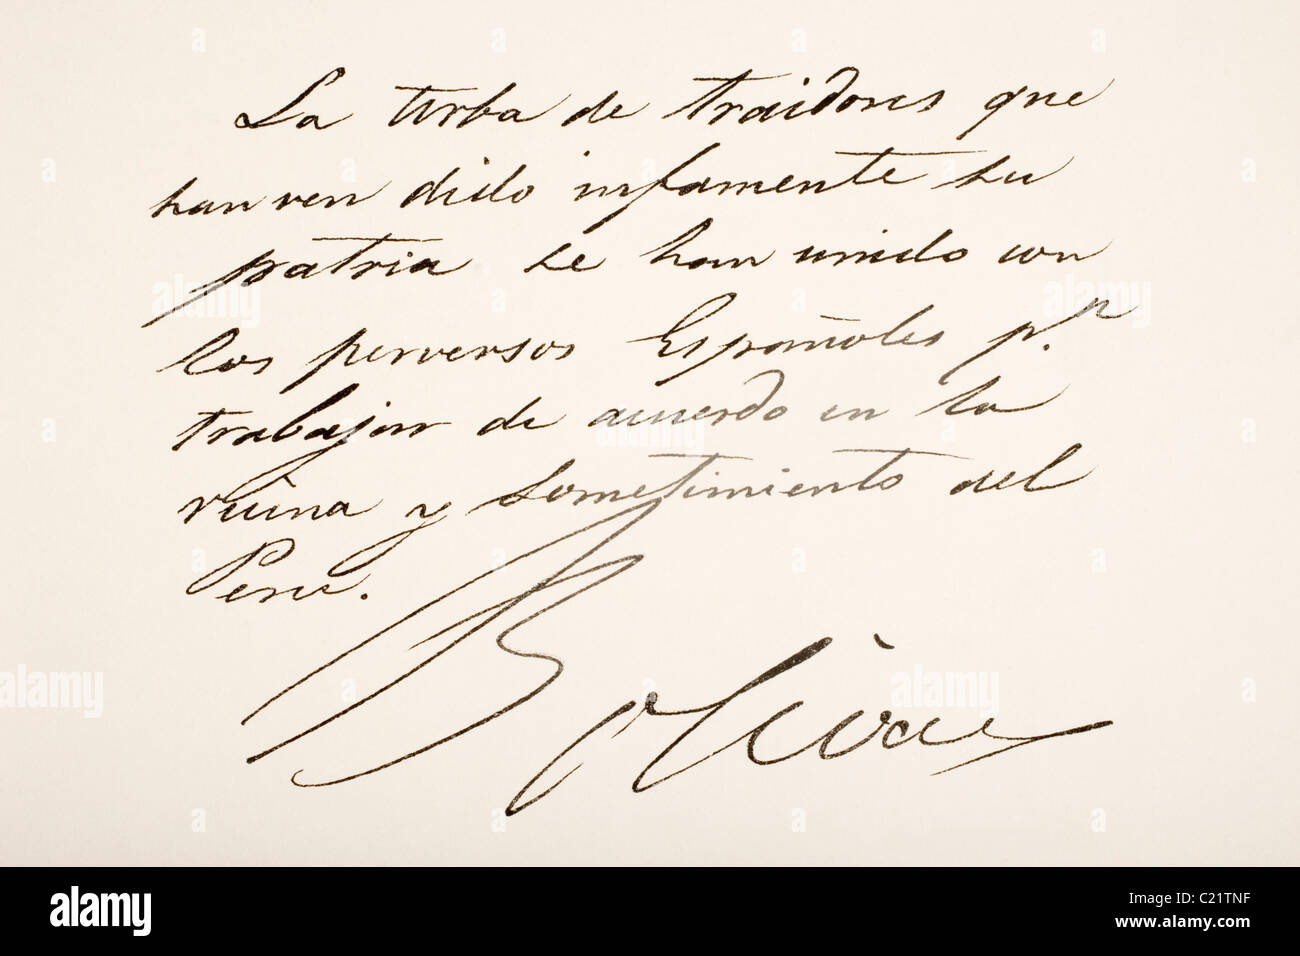 La turba de traidores que
han vendido infamente su
patria se han unido con
los perversos Españoles p.r
trabajar de acuerdo en la
ruina y sometimiento del
Peru.
Bolívar
alamy
Image ID: C21TNF
www.alamy.com